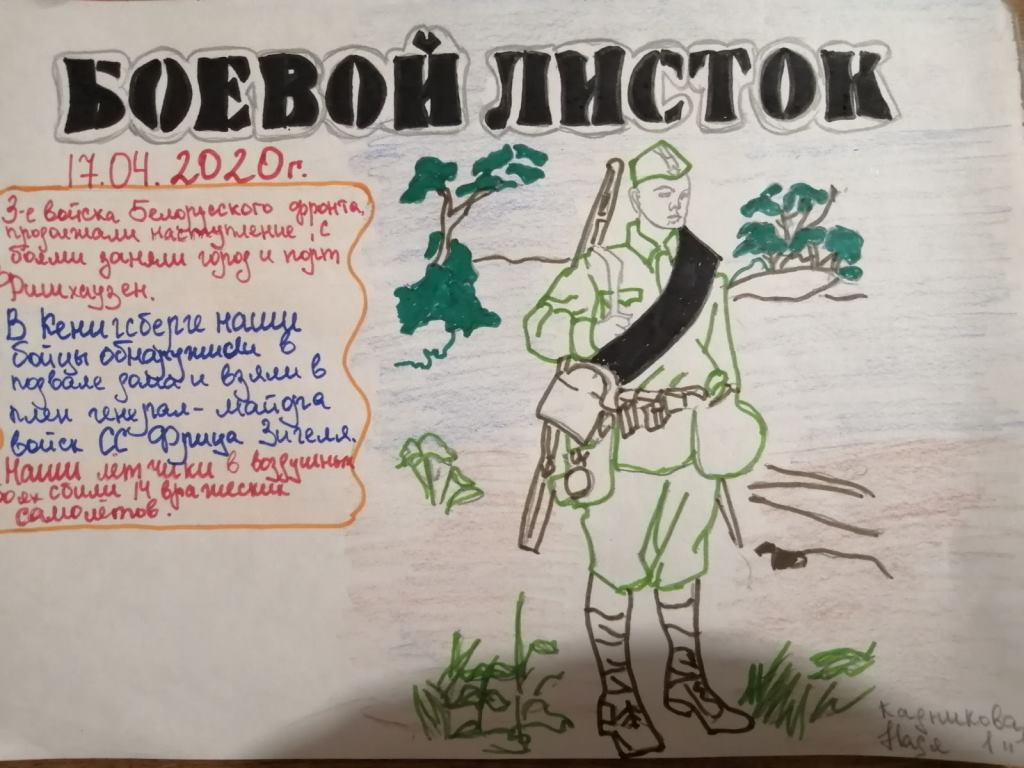 БОЕВОЙ ЛИСТОК
17.04. 2020г.
3-е войска Белорусского фронта,
продолжали наступление, с
боями заняли город и порт
Фишхаузен.
В Кенигсберге наши
бойцы обнаружили в
подвале дома и взяли в
плен генерал-майора
войск СС Фрица Зигеля.
Наши лётчики в воздушных
боях сбили 14 вражеских
самолётов.
Кадникова
Надя 1"